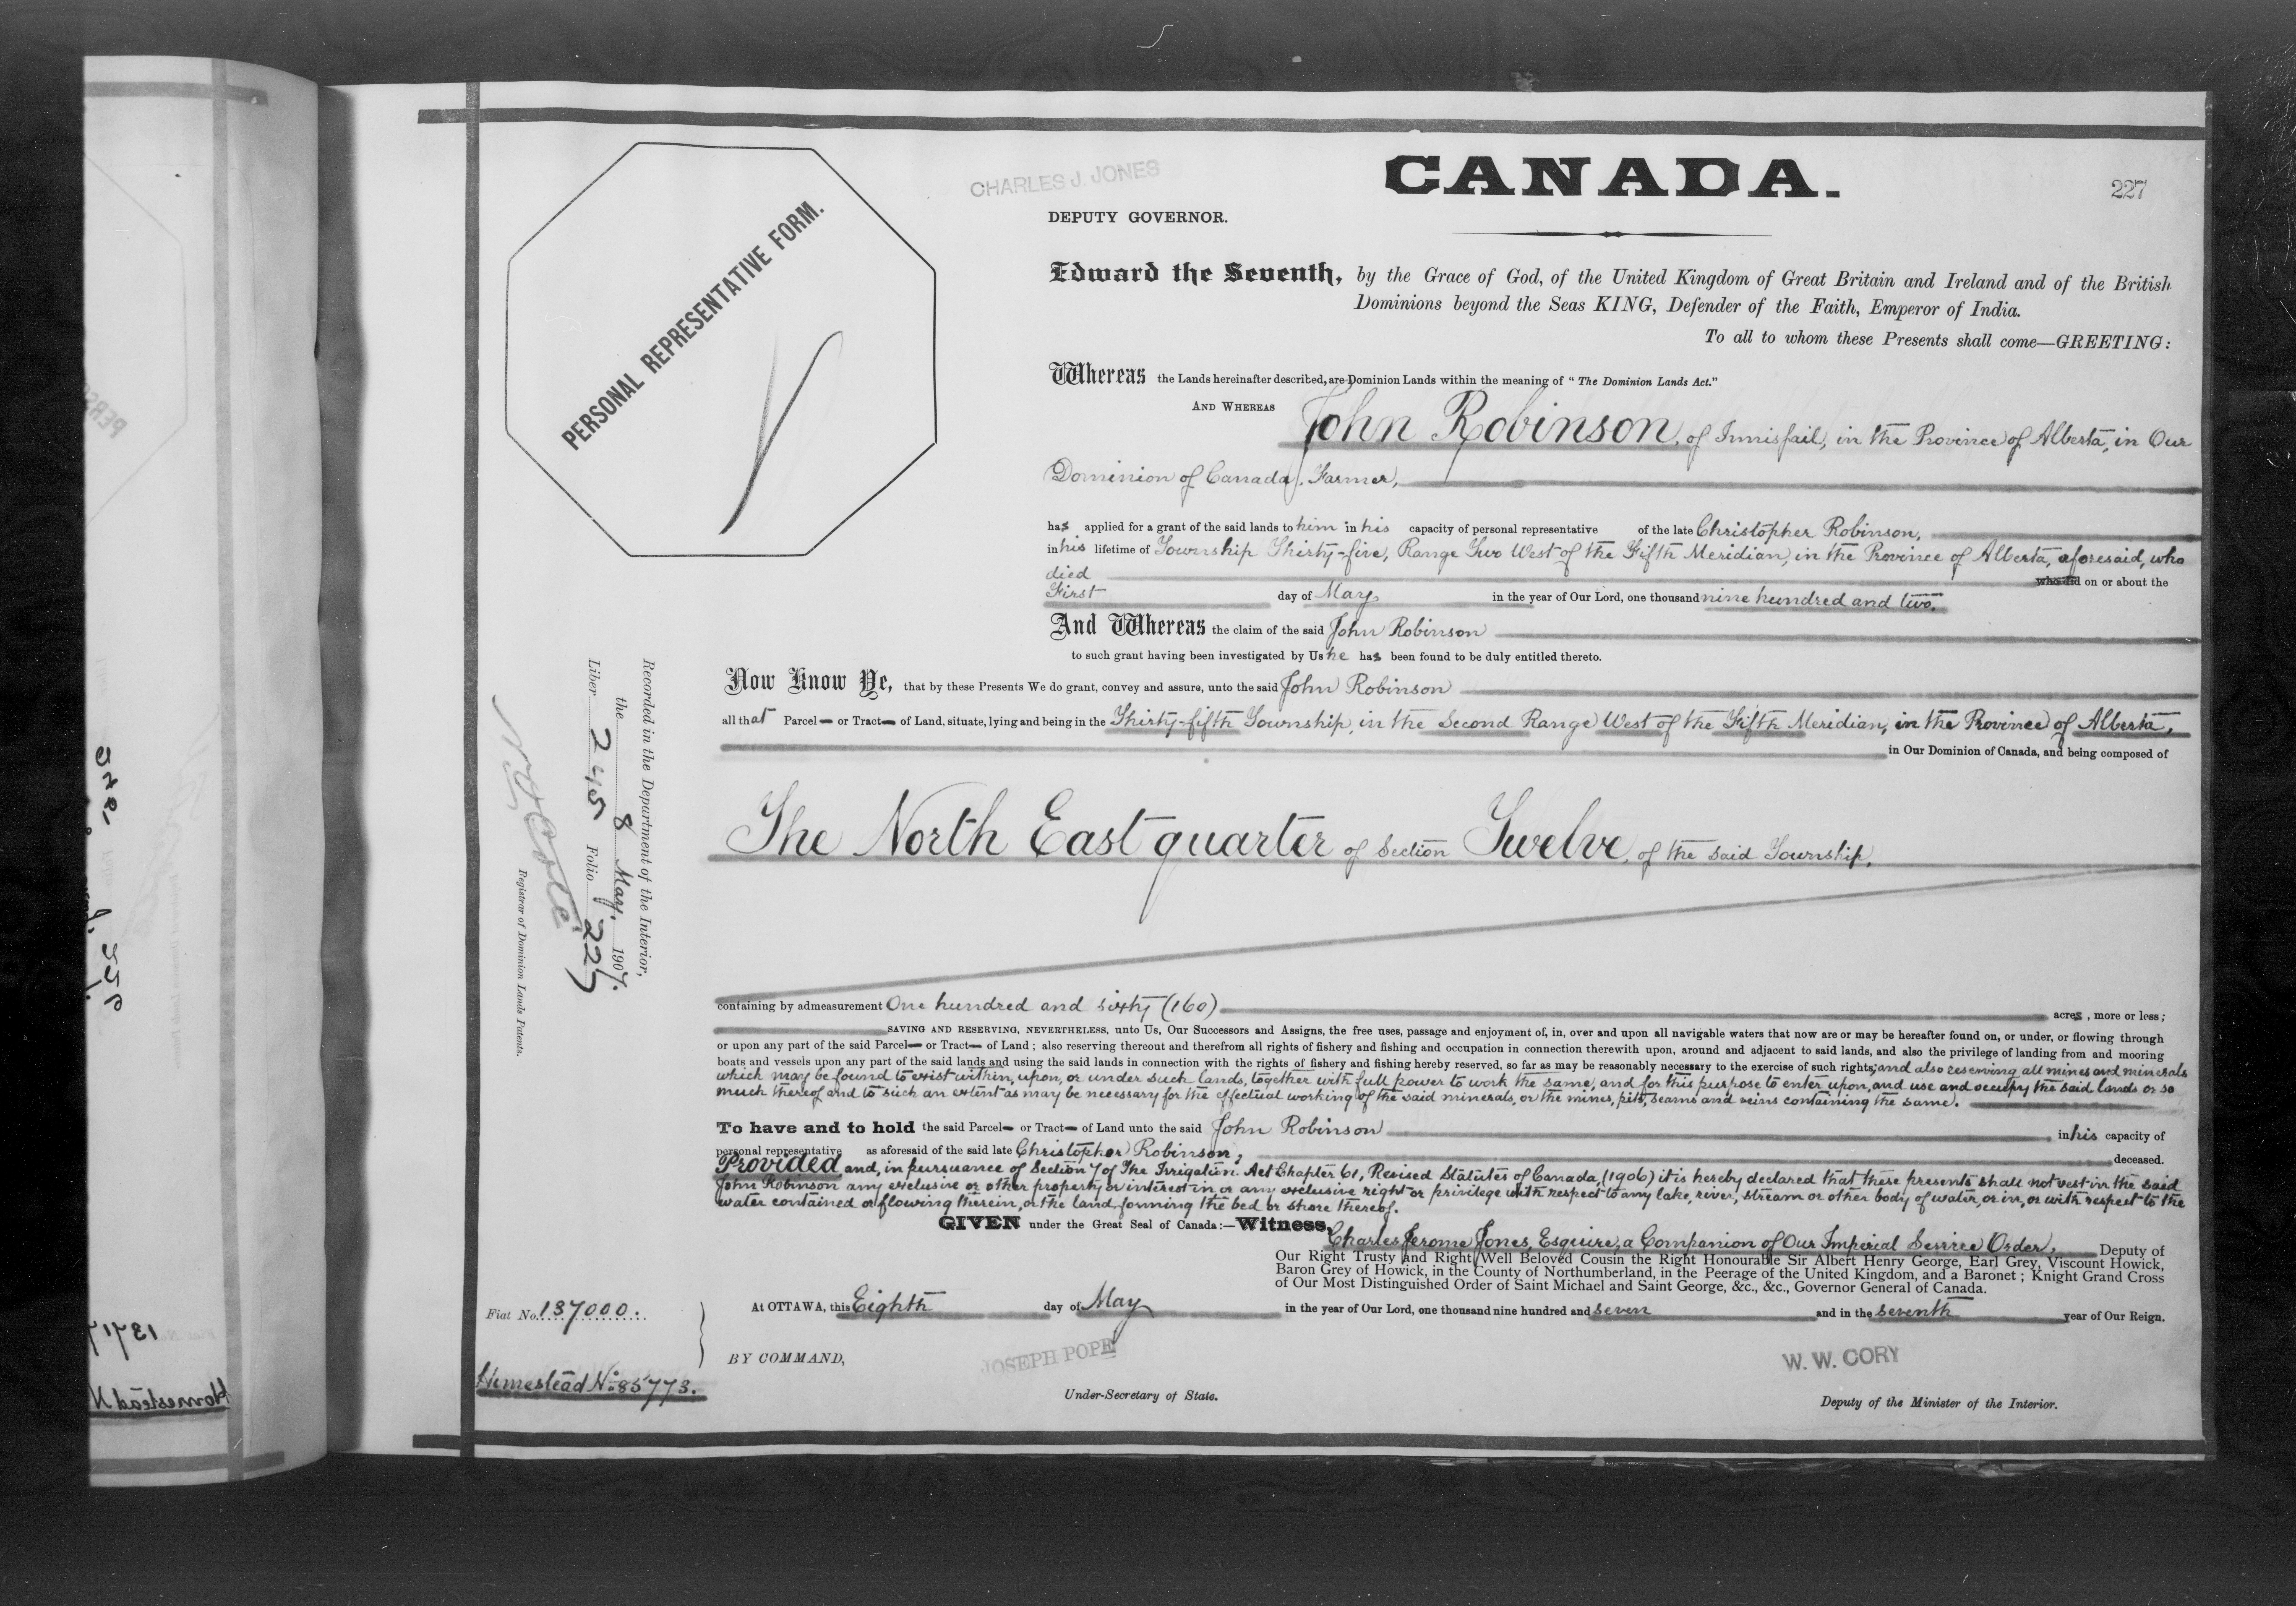 CHARLES J. JONES
CANADA.
227
DEPUTY GOVERNOR.
PERSONAL REPRESENTATIVE FORM.
Edward the Seventh, by the Grace of God, of the United Kingdom of Great Britain and Ireland and of the British
Dominions beyond the Seas KING, Defender of the Faith, Emperor of India.
To all to whom these Presents shall come—GREETING:
Whereas the Lands hereinafter described, are Dominion Lands within the meaning of "The Dominion Lands Act."
AND WHEREAS John Robinson, of Innisfail, in the Province of Alberta, in Our
Dominion of Canada, Farmer,
has applied for a grant of the said lands to him in his capacity of personal representative of the late Christopher Robinson,
in his lifetime of Township Thirty-five, Range Two West of the Fifth Meridian, in the Province of Alberta, aforesaid, who
died who did on or about the
First day of May, in the year of Our Lord, one thousand nine hundred and two.
And Whereas the claim of the said John Robinson
to such grant having been investigated by Us he has been found to be duly entitled thereto.
Now Know Ye, that by these Presents We do grant, convey and assure, unto the said John Robinson
all that Parcel or Tract of Land, situate, lying and being in the Thirty-fifth Township, in the Second Range West of the Fifth Meridian, in the Province of Alberta,
in Our Dominion of Canada, and being composed of
The North East quarter of Section Twelve, of the said Township,
containing by admeasurement One hundred and sixty (160) acres, more or less;
SAVING AND RESERVING, NEVERTHELESS, unto Us, Our Successors and Assigns, the free uses, passage and enjoyment of, in, over and upon all navigable waters that now are or may be hereafter found on, or under, or flowing through
or upon any part of the said Parcel or Tract of Land; also reserving thereout and therefrom all rights of fishery and fishing and occupation in connection therewith upon, around and adjacent to said lands, and also the privilege of landing from and mooring
boats and vessels upon any part of the said lands and using the said lands in connection with the rights of fishery and fishing hereby reserved, so far as may be reasonably necessary to the exercise of such rights; and also reserving all mines and minerals
which may be found to exist within, upon, or under such lands, together with full power to work the same, and for this purpose to enter upon, and use and occupy the said lands or so
much thereof and to such an extent as may be necessary for the effectual working of the said minerals, or the mines, pits, seams and veins containing the same.
To have and to hold the said Parcel or Tract of Land unto the said John Robinson in his capacity of
personal representative as aforesaid of the said late Christopher Robinson, deceased.
Provided and, in pursuance of Section 7 of The Irrigation Act Chapter 61, Revised Statutes of Canada, (1906) it is hereby declared that these presents shall not vest in the said
John Robinson any exclusive or other property or interest in or any exclusive right or privilege with respect to any lake, river, stream or other body of water, or in, or with respect to the
water contained or flowing therein, or the land forming the bed or shore thereof.
GIVEN under the Great Seal of Canada:—Witness,
Charles Jerome Jones, Esquire, a Companion of Our Imperial Service Order, Deputy of
Our Right Trusty and Right Well Beloved Cousin the Right Honourable Sir Albert Henry George, Earl Grey, Viscount Howick,
Baron Grey of Howick, in the County of Northumberland, in the Peerage of the United Kingdom, and a Baronet; Knight Grand Cross
of Our Most Distinguished Order of Saint Michael and Saint George, &c., &c., Governor General of Canada.
At OTTAWA, this Eighth day of May in the year of Our Lord, one thousand nine hundred and seven and in the seventh year of Our Reign.
BY COMMAND,
JOSEPH POPE
Under-Secretary of State.
W. W. CORY
Deputy of the Minister of the Interior.
Recorded in the Department of the Interior,
the 8 May, 1907.
Liber 245 Folio 227
Registrar of Dominion Lands Patents.
Fiat No. 137000.
Homestead No. 85773.